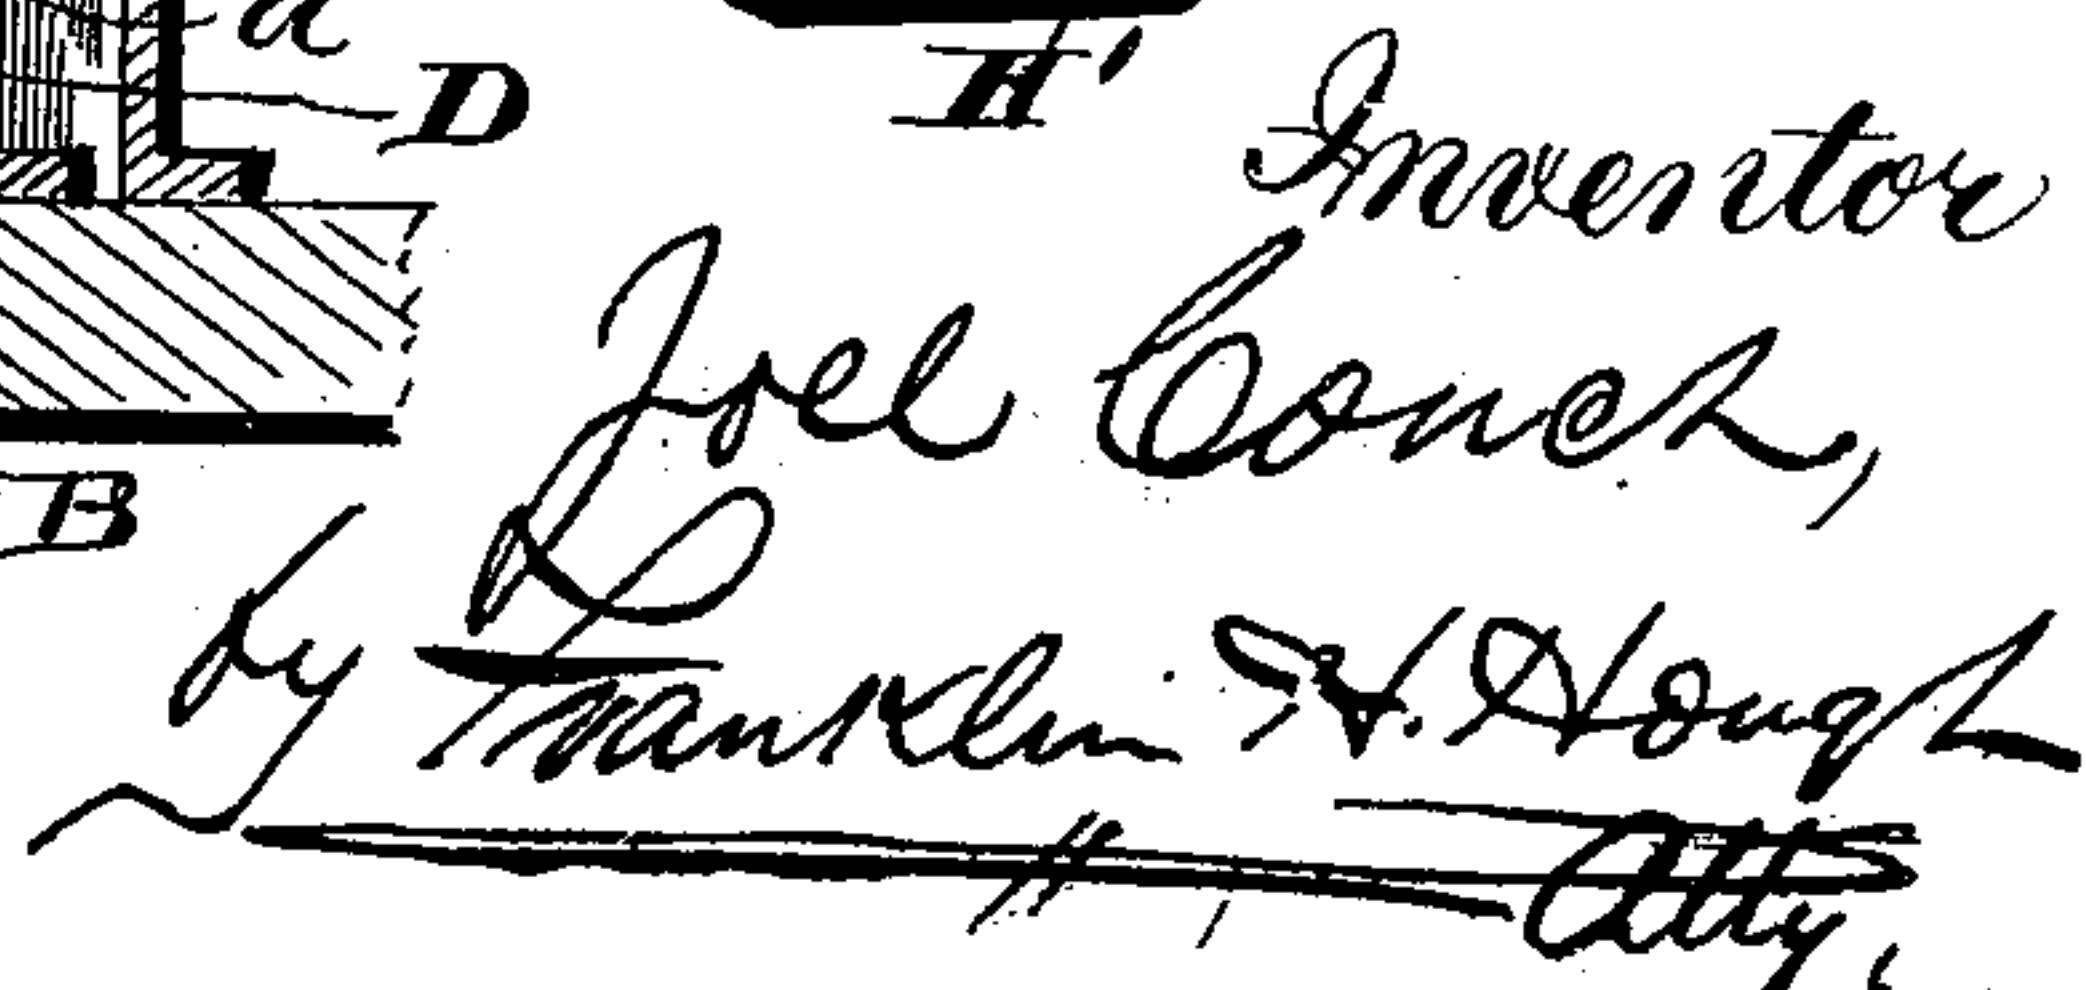 a
D
H'
Inventor
Joel Couch,
B
by Franklin H. Hough
Atty.